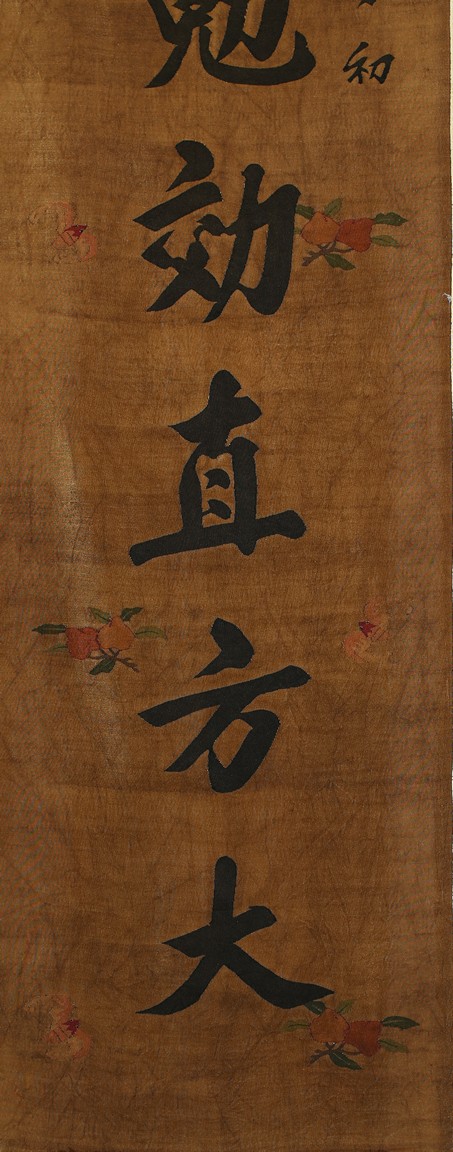 初
勉効直方大